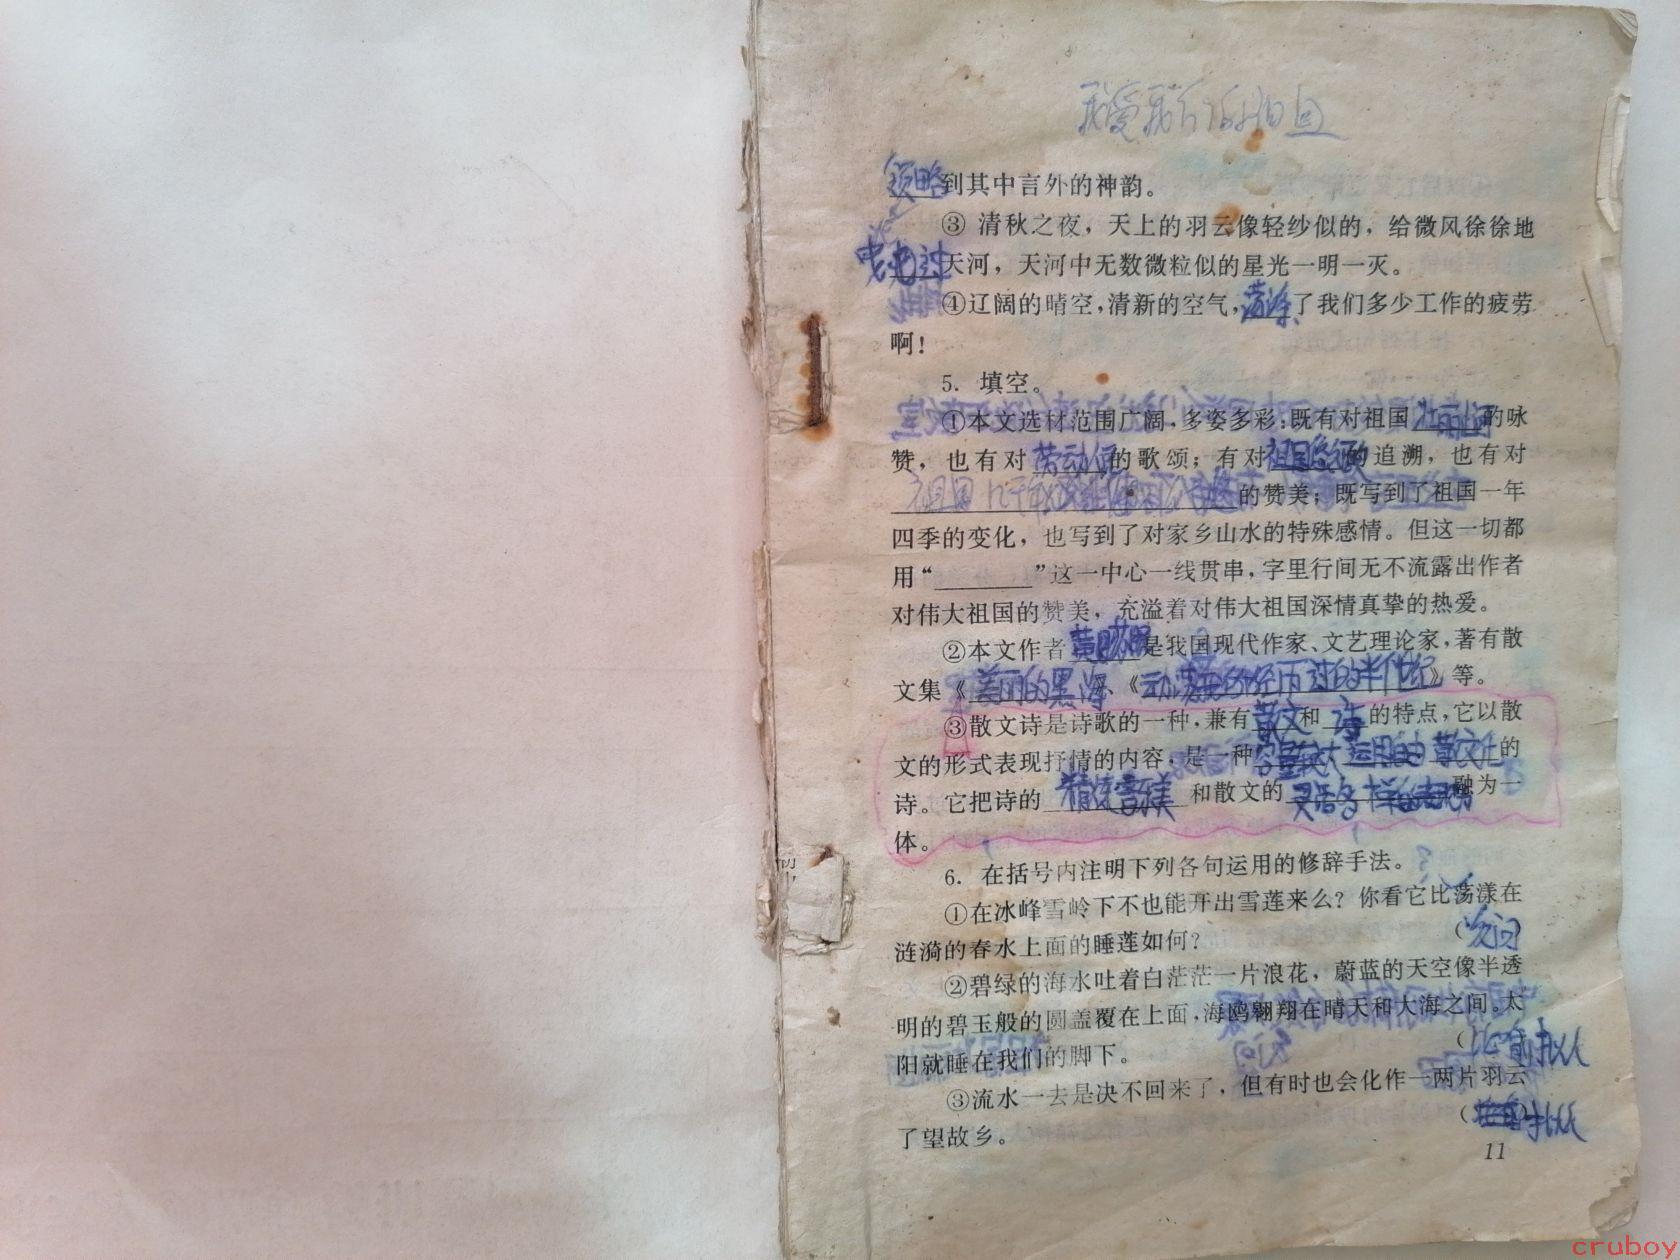 我爱我们的祖国
领略到其中言外的神韵。
③ 清秋之夜，天上的羽云像轻纱似的，给微风徐徐地
天河，天河中无数微粒似的星光一明一灭。
④辽阔的晴空，清新的空气，荡涤了我们多少工作的疲劳
啊！
5. 填空。
①本文选材范围广阔，多姿多彩；既有对祖国的咏
赞，也有对劳动人民的歌颂；有对祖国的追溯，也有对
祖国几千年的赞美；既写到了祖国一年
四季的变化，也写到了对家乡山水的特殊感情。但这一切都
用“______”这一中心一线贯串，字里行间无不流露出作者
对伟大祖国的赞美，充溢着对伟大祖国深情真挚的热爱。
②本文作者黄药眠是我国现代作家、文艺理论家，著有散
文集《美丽的黑海》、《动荡：我所经历过的半世纪》等。
③散文诗是诗歌的一种，兼有散文和诗的特点，它以散
文的形式表现抒情的内容，是一种容量较大运用自由散文化的
诗。它把诗的精练音乐美和散文的灵活多样的表现融为一
体。
6. 在括号内注明下列各句运用的修辞手法。
①在冰峰雪岭下不也能开出雪莲来么？你看它比荡漾在
涟漪的春水上面的睡莲如何？（反问
②碧绿的海水吐着白茫茫一片浪花，蔚蓝的天空像半透
明的碧玉般的圆盖覆在上面，海鸥翱翔在晴天和大海之间。太
阳就睡在我们的脚下。（比喻拟人
③流水一去是决不回来了，但有时也会化作一两片羽云
了望故乡。（拟人
11
cruboy